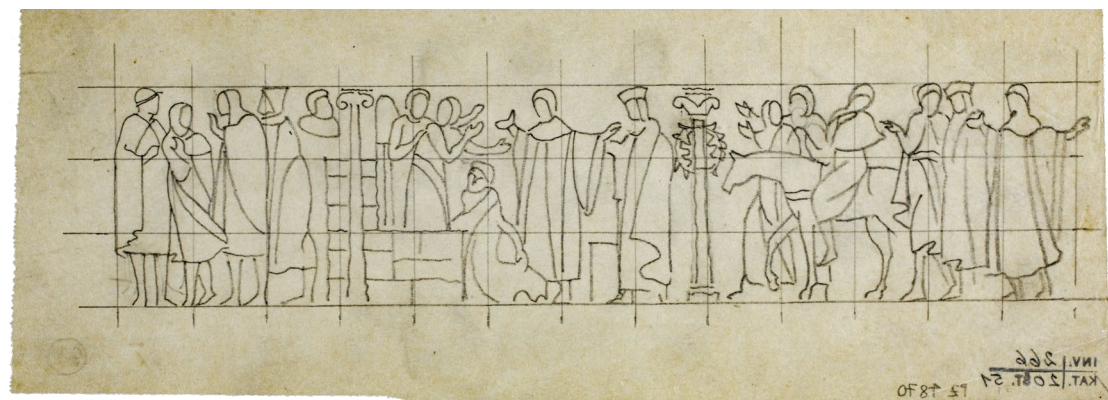 INV. 266
KAT. 20 ST. 51
PZ 7870